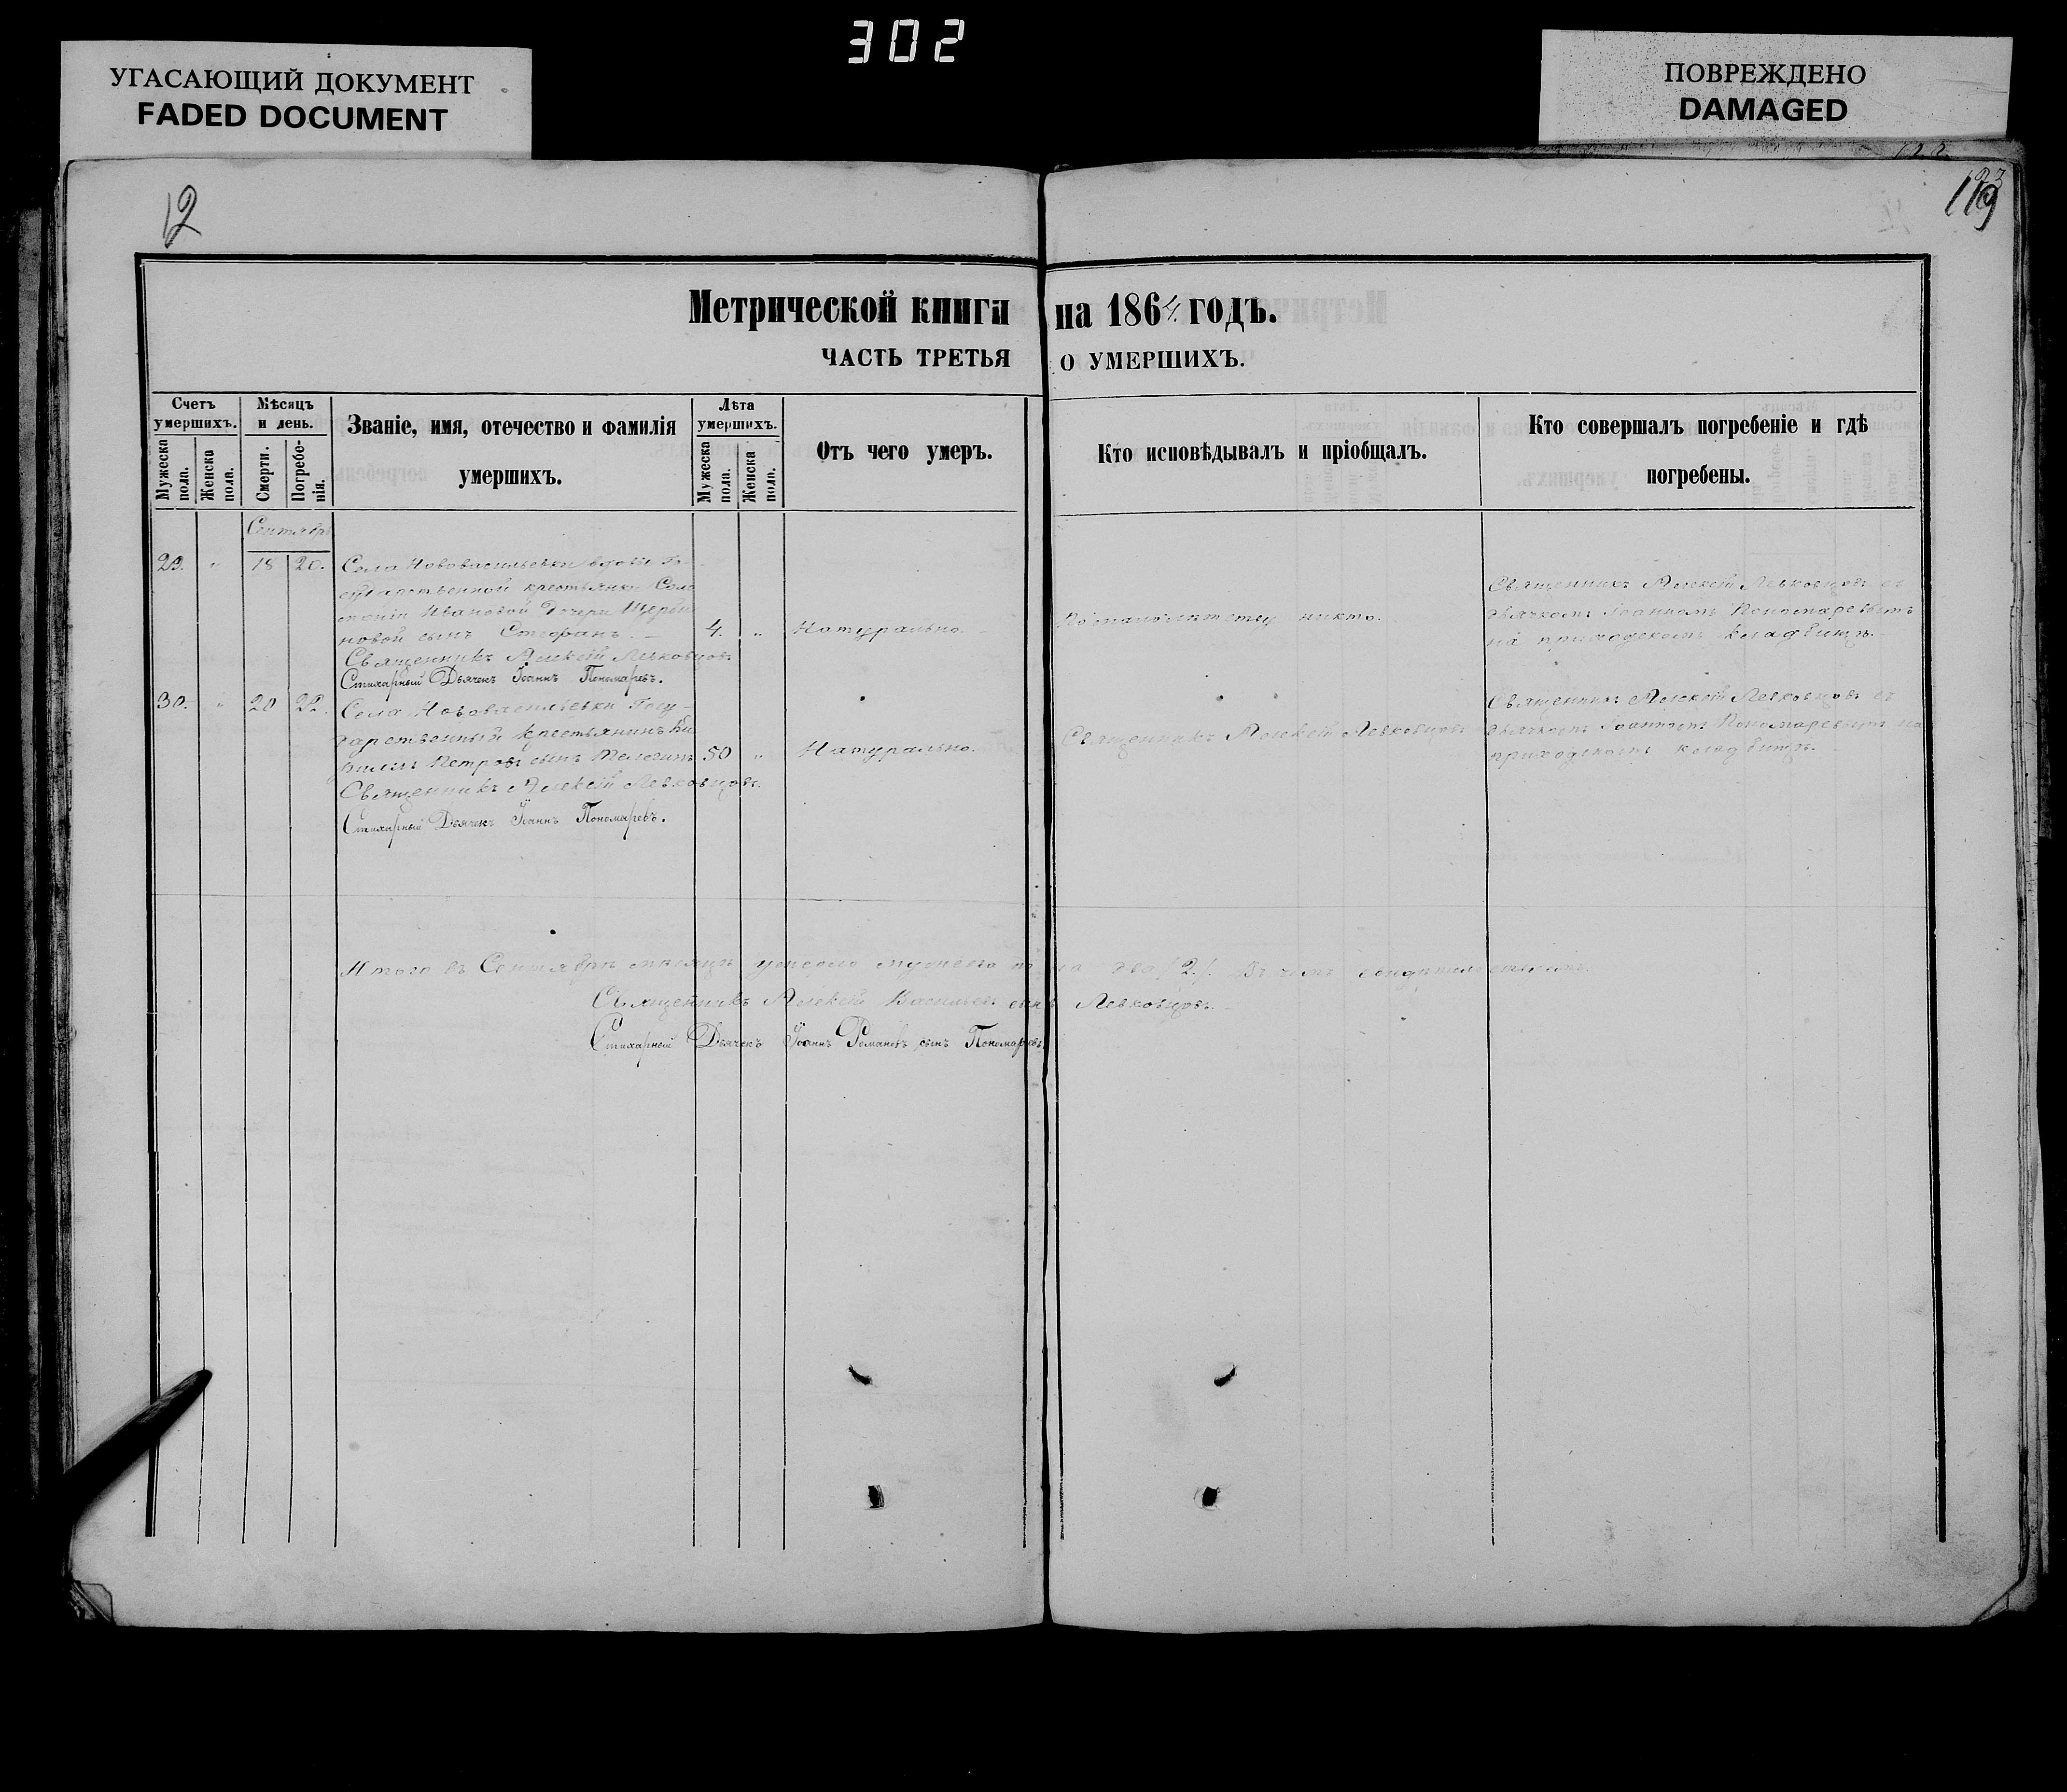 302
УГАСАЮЩИЙ ДОКУМЕНТ
FADED DOCUMENT
ПОВРЕЖДЕНО
DAMAGED
12
119
Метрической книги на 1864. годъ.
ЧАСТЬ ТРЕТЬЯ О УМЕРШИХЪ.
Счетъ умершихъ.
Мужеска пола.
Женска пола.
Мѣсяцъ и день.
Смерти.
Погребенія.
Званіе, имя, отечество и фамилія
умершихъ.
Лѣта умершихъ.
Мужеска пола.
Женска пола.
Отъ чего умеръ.
Кто исповѣдывалъ и пріобщалъ.
Кто совершалъ погребеніе и гдѣ
погребены.
Сентябрь
29. " 18 20. Села Нововасильевки вдовы Го-
сударственной крестьянки
Ивановой дочери Щерби-
новой сынъ Стефанъ. — 4. " Натурально.
По малолѣтству никто.
Священникъ Алексій Левковцовъ съ
дьячкомъ Іоанномъ Пономаревымъ
на приходскомъ кладбищѣ.
Священникъ Алексій Левковцовъ
Стихарный Дьячекъ Іоаннъ Пономаревъ.
30. " 20 22. Села Нововасильевки Госу-
дарственный крестьянинъ
Петровъ сынъ 50 " Натурально.
Священникъ Алексій Левковцовъ
Священникъ Алексій Левковцовъ съ
дьячкомъ Іоанномъ Пономаревымъ на
приходскомъ кладбищѣ.
Священникъ Алексій Левковцовъ.
Стихарный Дьячекъ Іоаннъ Пономаревъ.
Итого въ Сентябрѣ мѣсяцѣ умерло мужеска пола два /2./ Въ чемъ свидѣтельствуемъ:
Священникъ Алексій Васильевъ сынъ Левковцовъ.
Стихарный Дьячекъ Іоаннъ Романовъ сынъ Пономаревъ.